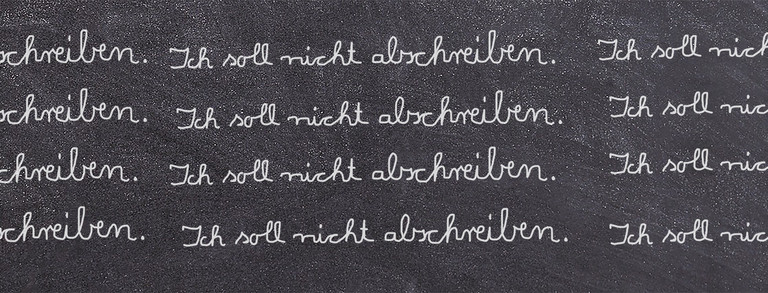 schreiben. Ich soll nicht abschreiben. Ich soll nich
schreiben. Ich soll nicht abschreiben. Ich soll nic
chreiben. Ich soll nicht abschreiben. Ich soll nic
schreiben. Ich soll nicht abschreiben. Ich soll nic